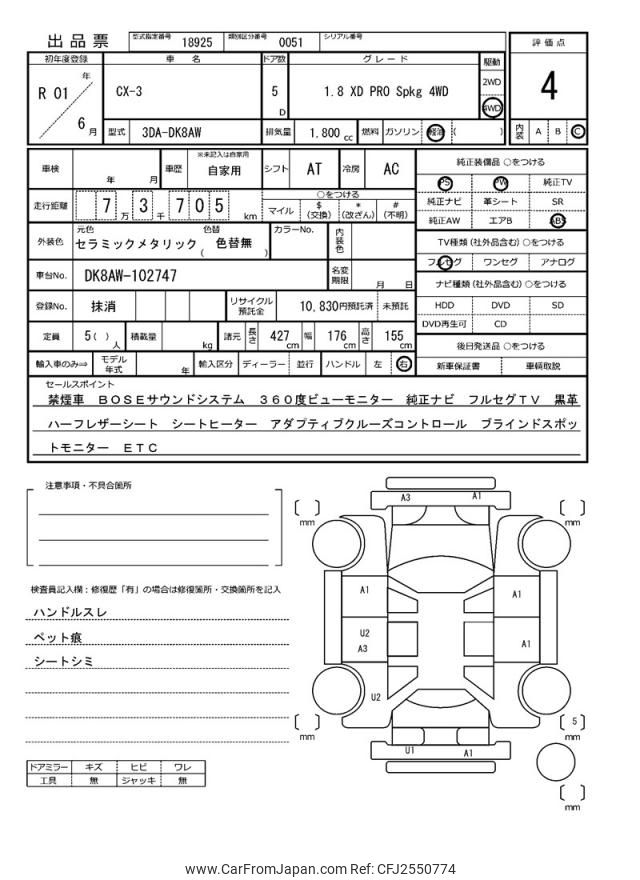 出品票
型式指定番号 18925 類別区分番号 0051 シリアル番号
初年度登録 車名 ドア数 グレード 駆動 評価点
R 01 年 6 月 CX-3 5 D 1.8 XD PRO Spkg 4WD 2WD 4WD 4
型式 3DA-DK8AW 排気量 1,800 cc 燃料 ガソリン 軽油 ( ) 内装 A B C
車検 年 月 車歴 ※未記入は自家用 自家用 シフト AT 冷房 AC
走行距離 7 万 3 千 7 0 5 km ○をつける
マイル $ (交換) * (改ざん) # (不明)
外装色 元色 セラミックメタリック 色替 ( 色替無 ) カラーNo. 内装色
車台No. DK8AW-102747 名変期限 月 日
登録No. 抹消 リサイクル預託金 10,830円預託済 未預託
定員 5( ) 人 積載量 kg 諸元 長さ 427 cm 幅 176 cm 高さ 155 cm
輸入車のみ⇒ モデル年式 年 輸入区分 ディーラー 並行 ハンドル 左 右
純正装備品 ○をつける
PS PW 純正TV
純正ナビ 革シート SR
純正AW エアB ABS
TV種類 (社外品含む) ○をつける
フルセグ ワンセグ アナログ
ナビ種類 (社外品含む) ○をつける
HDD DVD SD
DVD再生可 CD
後日発送品 ○をつける
新車保証書 車輌取説
セールスポイント
禁煙車 BOSEサウンドシステム 360度ビューモニター 純正ナビ フルセグTV 黒革
ハーフレザーシート シートヒーター アダプティブクルーズコントロール ブラインドスポッ
トモニター ETC
注意事項・不具合箇所
検査員記入欄:修復歴「有」の場合は修復箇所・交換箇所を記入
ハンドルスレ
ペット痕
シートシミ
ドアミラー キズ ヒビ ワレ
工具 無 ジャッキ 無
A3 A1
mm mm
A1 A1
U2
A3 A1
U2
mm 5 mm
U1 A1
mm
www.CarFromJapan.com Ref: CFJ2550774